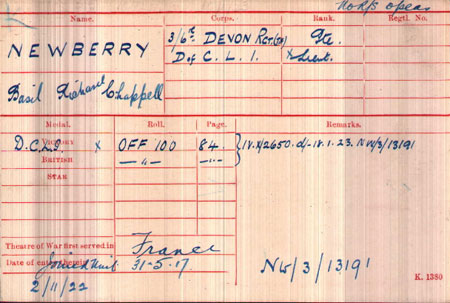 Name. Corps. Rank. Regtl. No.
NEWBERRY 3/6th DEVON RGT. Pte.
D of C. L. I. x Lieut.
Basil Richard Chappell
Medal. Roll. Page. Remarks.
VICTORY D.C.L.I. x OFF 100 84. IV.X/2650. d/-18.1.23. NW/3/13191
BRITISH —"— —"—
STAR
Theatre of War first served in France
Date of entry therein 31-5-17
Joined Unit
2/11/22
NW/3/13191 K. 1380